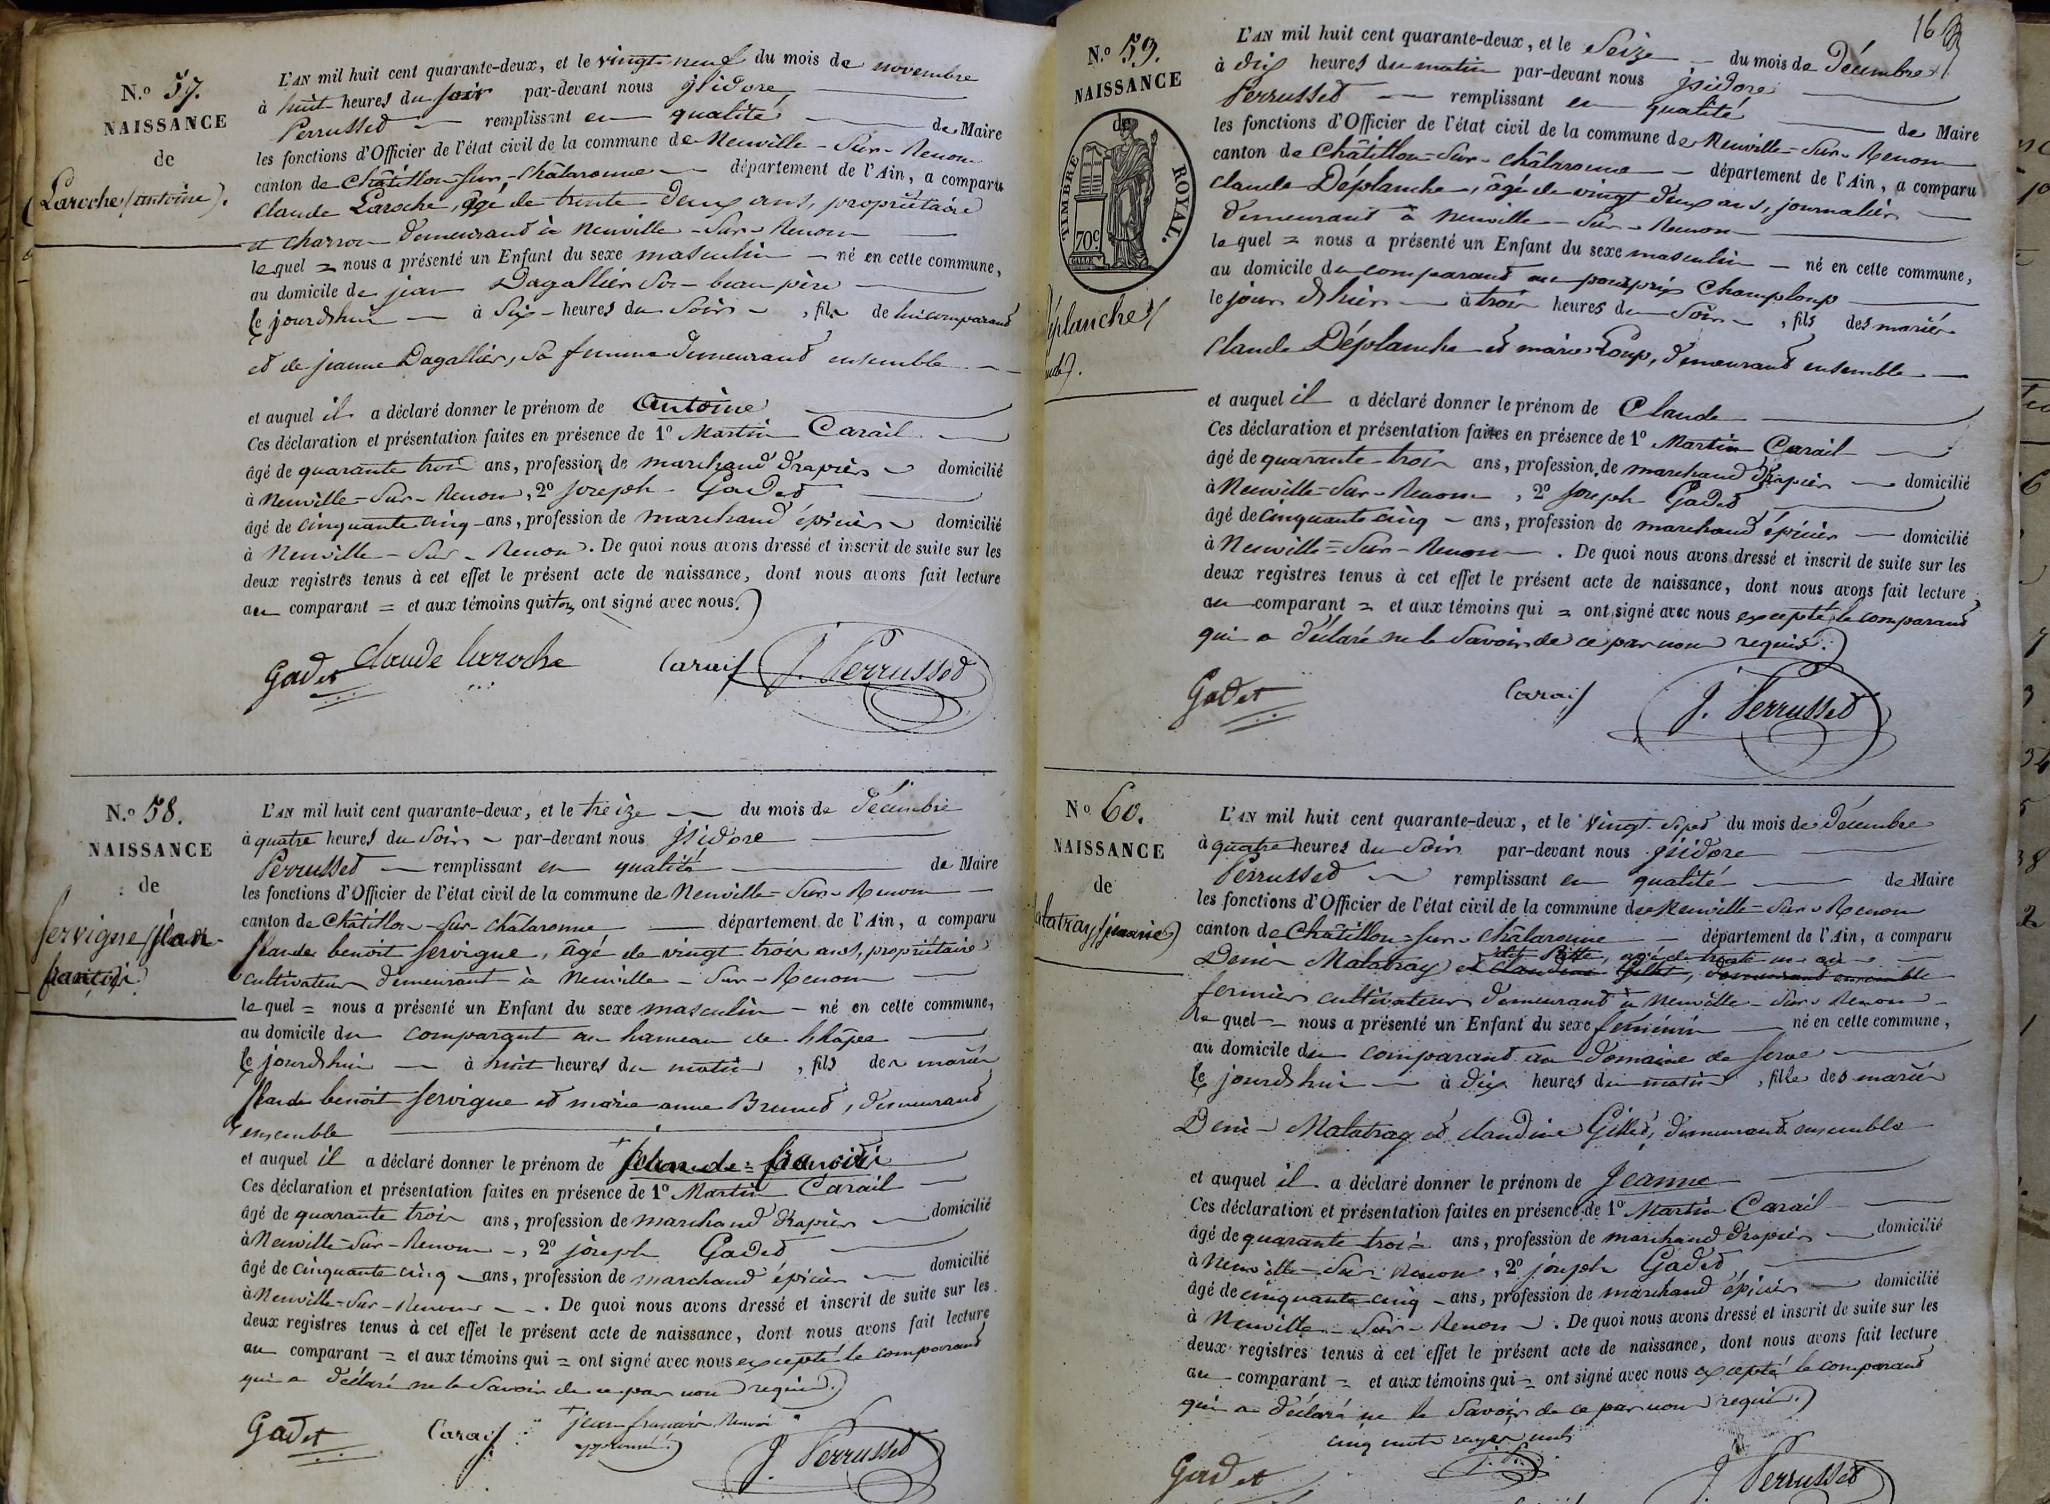 N.° 57.
NAISSANCE
de
Laroche (antoine).
L'AN mil huit cent quarante-deux, et le vingt-neuf du mois de novembre
à huit heures du soir par-devant nous jsidore
Perrussed remplissant en qualité de Maire
les fonctions d'Officier de l'état civil de la commune de Neuville-Sur-Renom
canton de Châtillon-sur-Châlaronne département de l'Ain, a comparu
Claude Laroche, âgé de trente deux ans, propriétaire
et charron demeurant à Neuville-Sur-Renom
lequel = nous a présenté un Enfant du sexe masculin né en cette commune,
au domicile de jean Dagallier son beau père
le jourd'hui à Six heures du Soir, fils de lui comparant
et de jeanne Dagallier, sa femme demeurant ensemble
et auquel il a déclaré donner le prénom de Antoine
Ces déclaration et présentation faites en présence de 1° Martin Carail
âgé de quarante trois ans, profession de marchand drapier domicilié
à Neuville-Sur-Renom, 2° joseph Gaded
âgé de cinquante cinq ans, profession de marchand épicier domicilié
à Neuville-Sur-Renom. De quoi nous avons dressé et inscrit de suite sur les
deux registres tenus à cet effet le présent acte de naissance, dont nous avons fait lecture
au comparant = et aux témoins qui tous ont signé avec nous.
Gadet claude laroche Carail J. Perrussed
N.° 58.
NAISSANCE
de
Servigne jean
françois
L'AN mil huit cent quarante-deux, et le treize du mois de décembre
à quatre heures du Soir par-devant nous jsidore
Perrussed remplissant en qualité de Maire
les fonctions d'Officier de l'état civil de la commune de Neuville-Sur-Renom
canton de Châtillon-Sur-Châlaronne département de l'Ain, a comparu
Claude benoit Servigne, âgé de vingt trois ans, propriétaire
cultivateur demeurant à Neuville-Sur-Renom
lequel = nous a présenté un Enfant du sexe masculin né en cette commune,
au domicile du comparant au hameau de
le jourd'hui à huit heures du matin, fils des mariés
Claude benoit Servigne et marie anne Brunet, demeurant
ensemble
et auquel il a déclaré donner le prénom de Claude=françois
Ces déclaration et présentation faites en présence de 1° Martin Carail
âgé de quarante trois ans, profession de marchand drapier domicilié
à Neuville-Sur-Renom, 2° joseph Gaded
âgé de cinquante cinq ans, profession de marchand épicier domicilié
à Neuville-Sur-Renom. De quoi nous avons dressé et inscrit de suite sur les
deux registres tenus à cet effet le présent acte de naissance, dont nous avons fait lecture
au comparant = et aux témoins qui = ont signé avec nous excepté le comparant
qui a déclaré ne le Savoir de ce par nous requis.
Gadet Carail jean françois Renvoi
approuvé J. Perrussed
16
N.° 59.
NAISSANCE
de
TIMBRE ROYAL.
70c
Déplanche
L'AN mil huit cent quarante-deux, et le Seize du mois de Décembre
à dix heures du matin par-devant nous jsidore
Perrussed remplissant en qualité de Maire
les fonctions d'Officier de l'état civil de la commune de Neuville-Sur-Renom
canton de Châtillon-Sur-Châlaronne département de l'Ain, a comparu
Claude Déplanche, âgé de vingt deux ans, journalier
demeurant à Neuville-Sur-Renom
lequel = nous a présenté un Enfant du sexe masculin né en cette commune,
au domicile du comparant au pourpris Champloup
le jour d'hier à trois heures du Soir, fils des mariés
Claude Déplanche et marie Loup, demeurant ensemble
et auquel il a déclaré donner le prénom de Claude
Ces déclaration et présentation faites en présence de 1° Martin Carail
âgé de quarante trois ans, profession de marchand drapier domicilié
à Neuville-Sur-Renom, 2° joseph Gaded
âgé de cinquante cinq ans, profession de marchand épicier domicilié
à Neuville-Sur-Renom. De quoi nous avons dressé et inscrit de suite sur les
deux registres tenus à cet effet le présent acte de naissance, dont nous avons fait lecture
au comparant = et aux témoins qui = ont signé avec nous excepté le comparant
qui a déclaré ne le Savoir de ce par nous requis.
Gadet Carail J. Perrussed
N.° 60.
NAISSANCE
de
Malatray (jeanne)
L'AN mil huit cent quarante-deux, et le vingt-Sept du mois de décembre
à quatre heures du Soir par-devant nous jsidore
Perrussed remplissant en qualité de Maire
les fonctions d'Officier de l'état civil de la commune de Neuville-Sur-Renom
canton de Châtillon-sur-Châlaronne département de l'Ain, a comparu
âgé de trente un ans
Denis Malatray et Claudine Gillet, demeurant ensemble
fermier cultivateur demeurant à Neuville-Sur-Renom
lequel nous a présenté un Enfant du sexe féminin né en cette commune,
au domicile du comparant au Domaine de Serve
le jourd'hui à dix heures du matin, fille des mariés
Denis Malatray et claudine Gilled, demeurant ensemble
et auquel il a déclaré donner le prénom de Jeanne
Ces déclaration et présentation faites en présence de 1° Martin Carail
âgé de quarante trois ans, profession de marchand drapier domicilié
à Neuville-Sur-Renom, 2° joseph Gaded
âgé de cinquante cinq ans, profession de marchand épicier domicilié
à Neuville-Sur-Renom. De quoi nous avons dressé et inscrit de suite sur les
deux registres tenus à cet effet le présent acte de naissance, dont nous avons fait lecture
au comparant = et aux témoins qui = ont signé avec nous excepté le comparant
qui a déclaré ne le Savoir de ce par nous requis.
cinq mots rayés nuls
J. P.
Gadet J. Perrussed